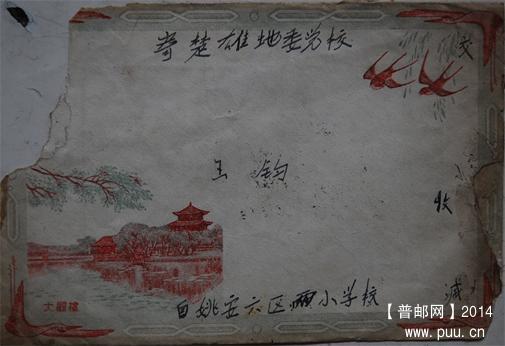 寄楚雄地委党校
交
王钧
收
自姚安六区小学校
大觀楼
【普邮网】2014
www.puu.cn